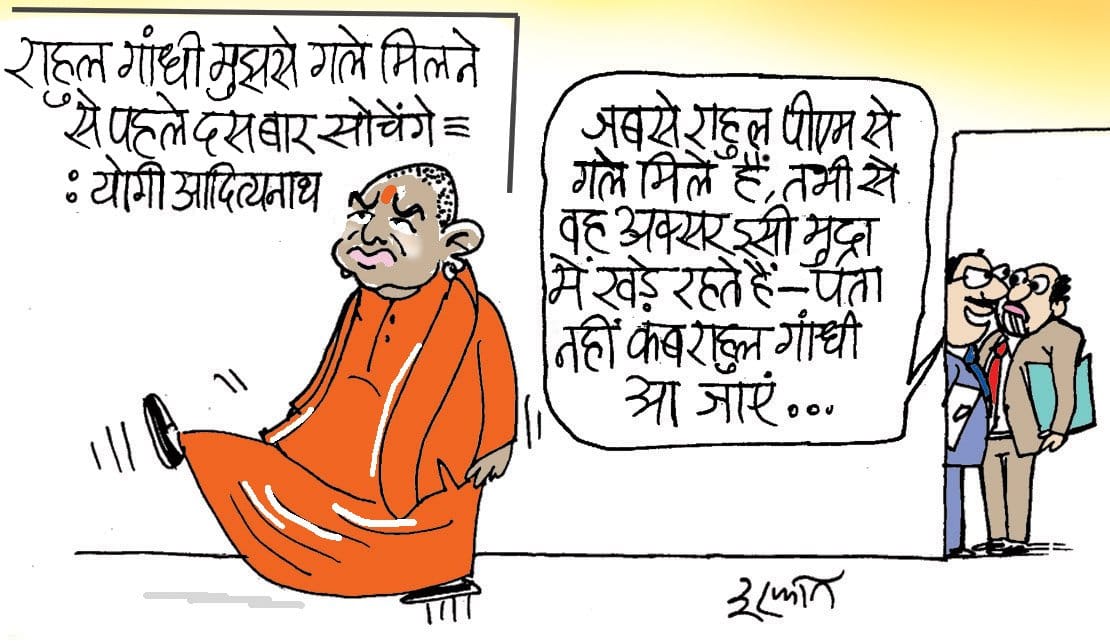 राहुल गांधी मुझसे गले मिलने
से पहले दस बार सोचेंगे =
: योगी आदित्यनाथ
जबसे राहुल पीएम से
गले मिले हैं, तभी से
वह अक्सर इसी मुद्रा
में खड़े रहते हैं – पता
नहीं कब राहुल गांधी
आ जाएं...
इरफान